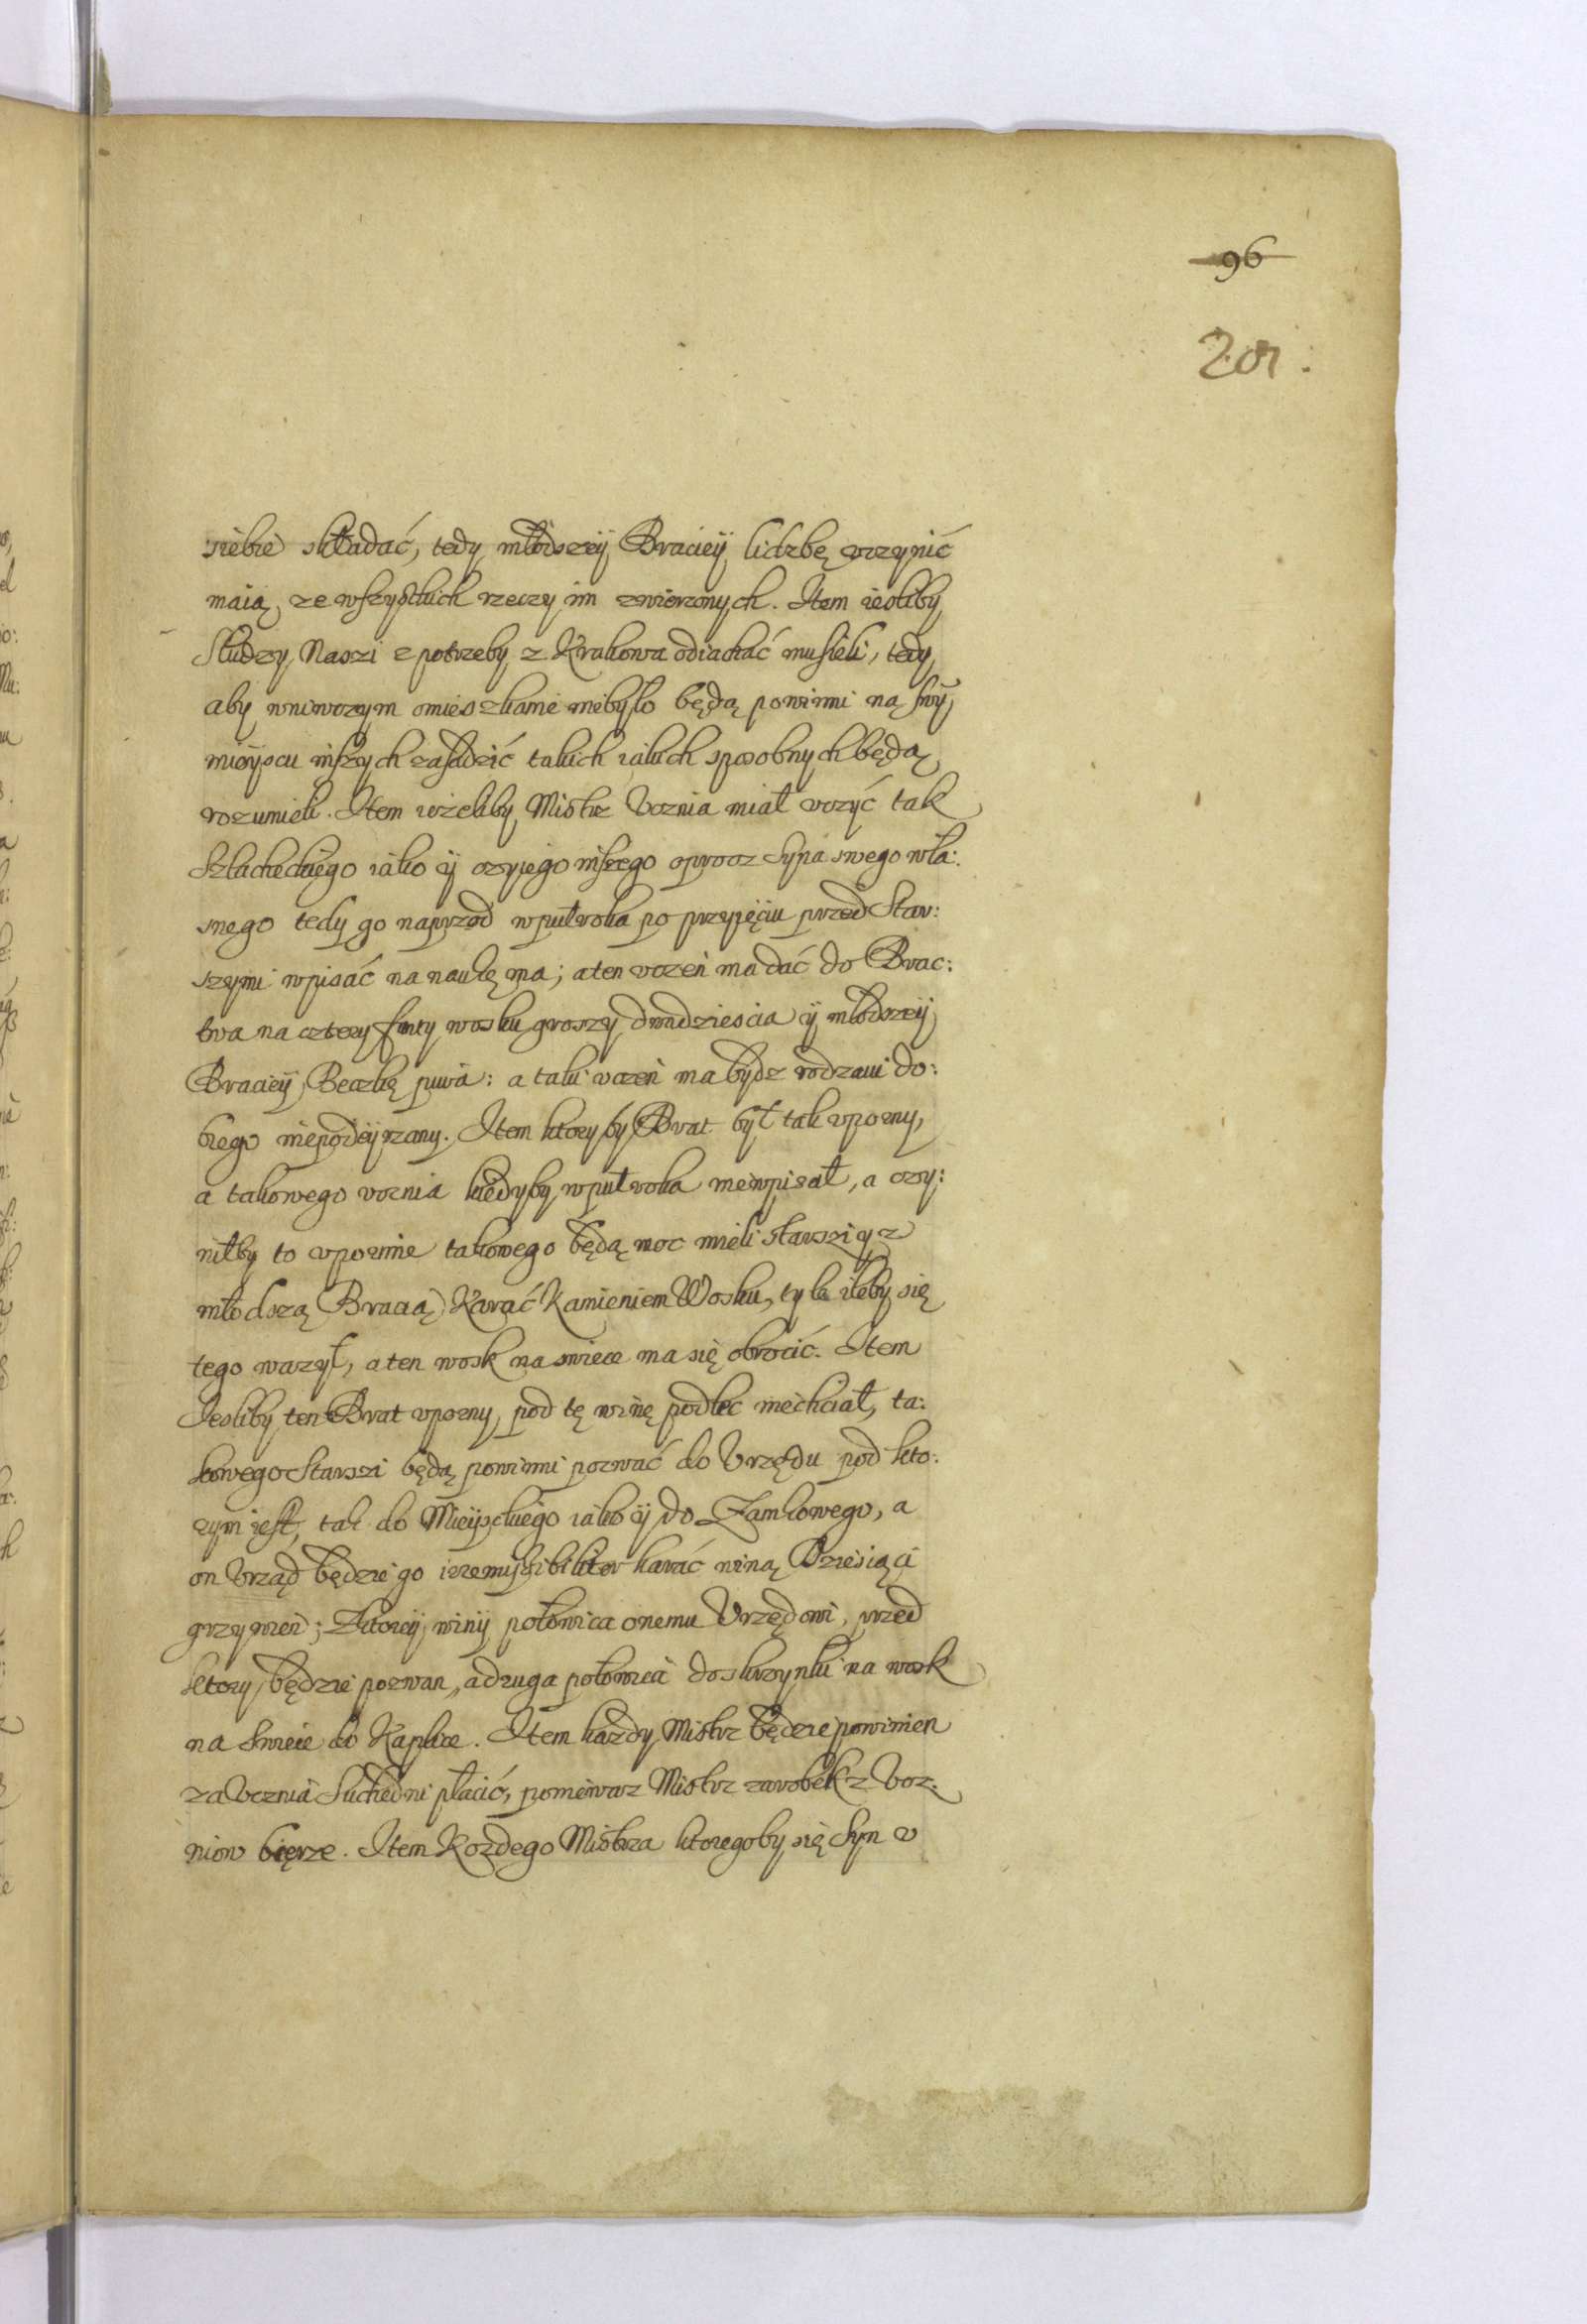 96
201.
siebie składać, tedy młodszeÿ Bracieÿ lidzbę vczynić
maią ze wszystkich rzeczy im zwierzonych. Item iesliby
Słudzy Naszi z potrzeby z Krakowa odiachać musieli, tedy
aby wniwczym omieszkanie niebyło będą powinni na swÿ
mieÿscu inszych zasadzić takich iakich sposobnych będą
rozumieli. Item ieżeliby Mistrz Vcznia miał vczyć tak
Szlacheckiego iako ÿ czyiego inszego oprocz Syna swego wła:
snego tedy go naprzod wpułroka po przyięciu przed Star:
szymi wpisać na naukę ma; a ten vczeń ma dać do Brac:
twa na cztery funty wosku groszy dwadziescia ÿ młodszeÿ
Bracieÿ Beczkę piwa: a taki vczeń ma bydz rodzaiu do:
brego niepodeÿrzany. Item ktory by Brat był tak vporny,
a takowego vcznia kiedyby wpułroka niewpisał, a czy:
niłby to vpornie takowego będą moc mieli starszi ÿ z
młodszą Bracią Karać Kamieniem Wosku, tyle ileby się
tego ważył, a ten wosk na swiece ma się obrocić. Item
Iesliby ten Brat vporny pod tę winę podlec niechciał, ta:
kowego Starszi będą powinni pozwać do Vrzędu pod kto:
rym iest, tak do Mieÿsckiego iako ÿ do Zamkowego, a
on Vrząd będzie go irremissibiliter karać winą Dziesiąci
grzywien; Zktoreÿ winÿ połowica onemu Vrzędowi, przed
ktory będzie pozwan, a druga połowica do skrzynki na wosk
na swiece do Kaplice. Item każdy Mistrz będzie powinien
za Vcznia Suchedni płacić, poniewasz Mistrz zarobek z Vcz:
niow bierze. Item Kozdego Mistrza ktoregoby się Syn v